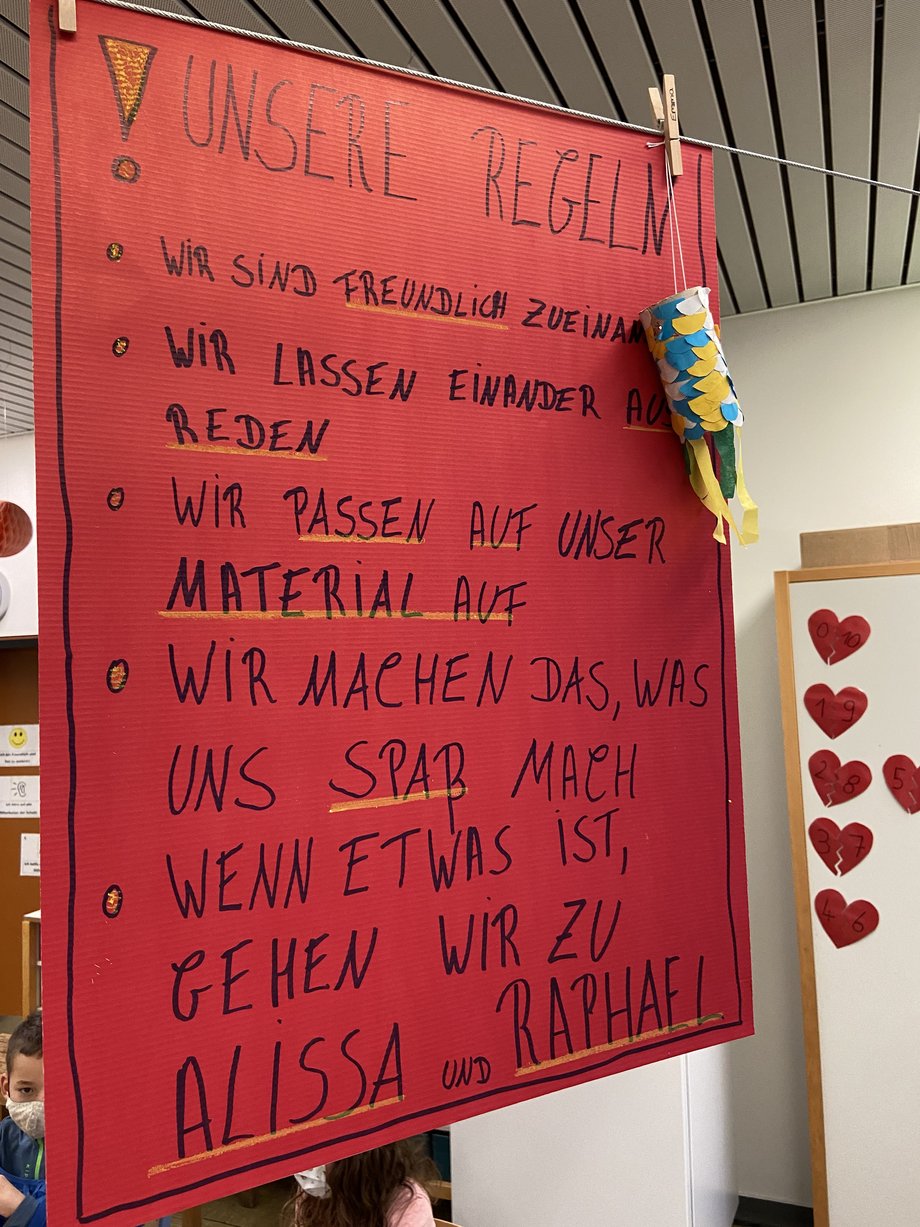 ! UNSERE REGELN!
WiR SiND FREUNDLICH ZUEiNAN
WiR LASSEN EiNANDER AUS
REDEN
WiR PASSEN AUF UNSER
MATERiAL AUF
WiR MACHEN DAS, WAS
UNS SPAß MACH
WENN ETWAS iST,
GEHEN WiR ZU
ALiSSA UND RAPHAEL
0 10
1 9
2 8
5
3 7
4 6